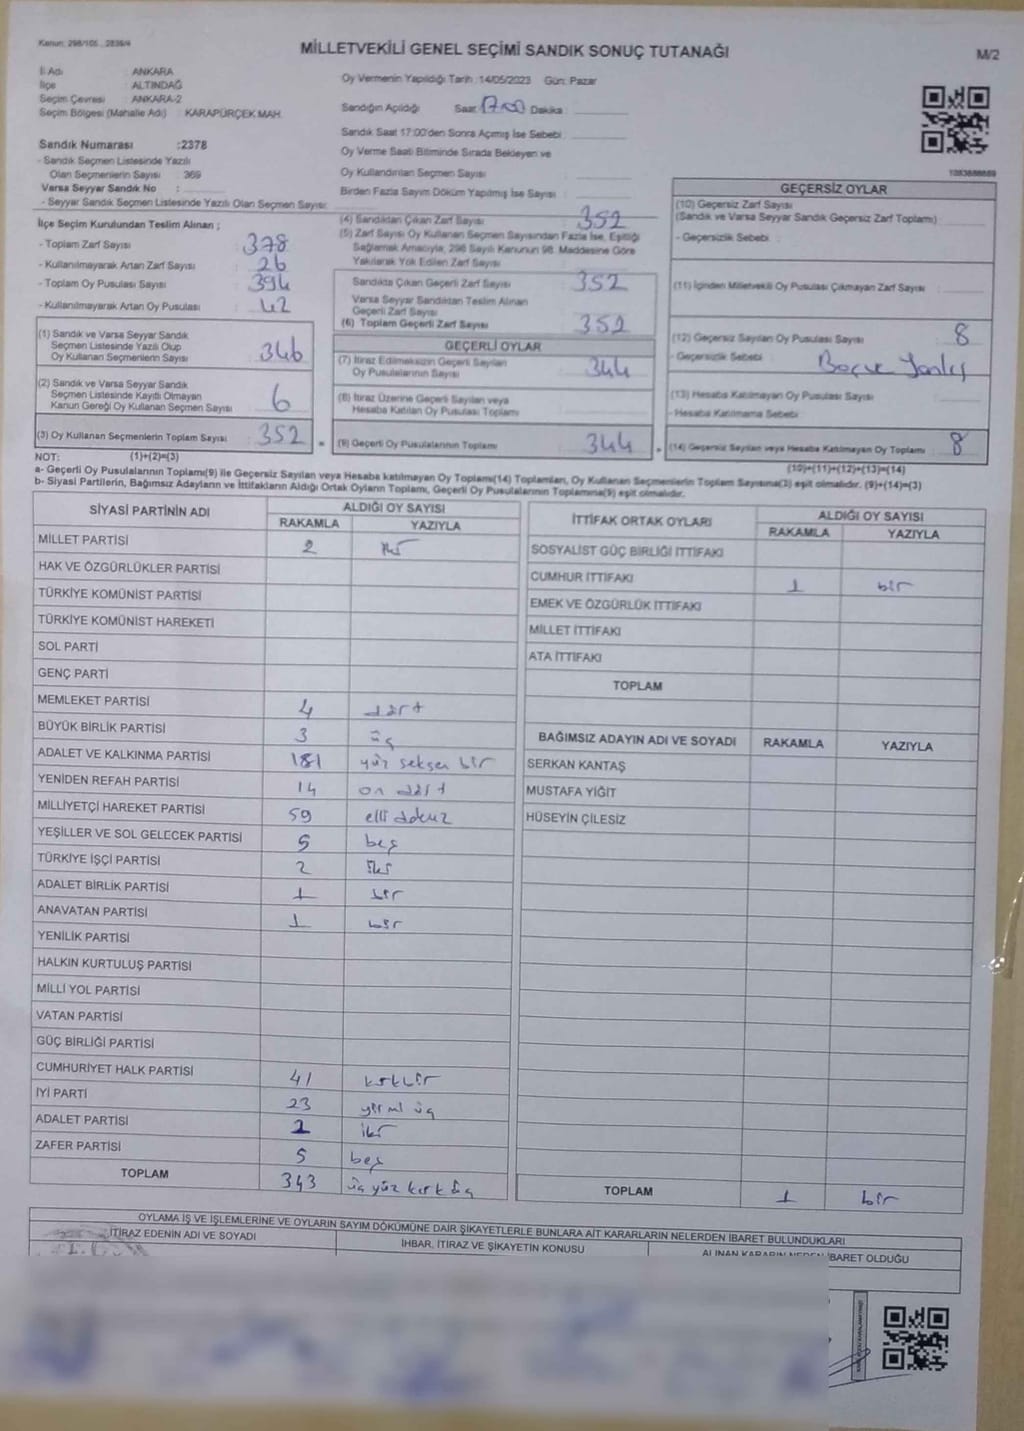 Kanun: 298/105 , 2839/4
MİLLETVEKİLİ GENEL SEÇİMİ SANDIK SONUÇ TUTANAĞI
M/2
İl Adı : ANKARA
İlçe : ALTINDAĞ
Seçim Çevresi : ANKARA-2
Seçim Bölgesi (Mahalle Adı) : KARAPÜRÇEK MAH.
Sandık Numarası :2378
- Sandık Seçmen Listesinde Yazılı
Olan Seçmenlerin Sayısı : 369
Varsa Seyyar Sandık No :
- Seyyar Sandık Seçmen Listesinde Yazılı Olan Seçmen Sayısı:
Oy Vermenin Yapıldığı Tarih :14/05/2023 Gün: Pazar
Sandığın Açıldığı Saat: 17:00 Dakika :
Sandık Saat 17:00'den Sonra Açımış İse Sebebi :
Oy Verme Saati Bitiminde Sırada Bekleyen ve
Oy Kullandırılan Seçmen Sayısı :
Birden Fazla Sayım Döküm Yapılmış İse Sayısı :
İlçe Seçim Kurulundan Teslim Alınan ;
- Toplam Zarf Sayısı 378
- Kullanılmayarak Artan Zarf Sayısı 26
- Toplam Oy Pusulası Sayısı 394
- Kullanılmayarak Artan Oy Pusulası 42
(1) Sandık ve Varsa Seyyar Sandık
Seçmen Listesinde Yazılı Olup
Oy Kullanan Seçmenlerin Sayısı 346
(2) Sandık ve Varsa Seyyar Sandık
Seçmen Listesinde Kayıtlı Olmayan
Kanun Gereği Oy Kullanan Seçmen Sayısı 6
(3) Oy Kullanan Seçmenlerin Toplam Sayısı 352 =
(4) Sandıktan Çıkan Zarf Sayısı 352
(5) Zarf Sayısı Oy Kullanan Seçmen Sayısından Fazla İse, Eşitliği
Sağlamak Amacıyla, 298 Sayılı Kanunun 98. Maddesine Göre
Yakılarak Yok Edilen Zarf Sayısı
Sandıkta Çıkan Geçerli Zarf Sayısı 352
Varsa Seyyar Sandıktan Teslim Alınan
Geçerli Zarf Sayısı
(6) Toplam Geçerli Zarf Sayısı 352
GEÇERLİ OYLAR
(7) İtiraz Edilmeksizin Geçerli Sayılan
Oy Pusulalarının Sayısı 344
(8) İtiraz Üzerine Geçerli Sayılan veya
Hesaba Katılan Oy Pusulası Toplamı
(9) Geçerli Oy Pusulalarının Toplamı 344
GEÇERSİZ OYLAR
(10) Geçersiz Zarf Sayısı
(Sandık ve Varsa Seyyar Sandık Geçersiz Zarf Toplamı)
- Geçersizlik Sebebi :
(11) İçinden Milletvekili Oy Pusulası Çıkmayan Zarf Sayısı :
(12) Geçersiz Sayılan Oy Pusulası Sayısı 8
- Geçersizlik Sebebi :
(13) Hesaba Katılmayan Oy Pusulası Sayısı
- Hesaba Katılmama Sebebi:
(14) Geçersiz Sayılan veya Hesaba Katılmayan Oy Toplamı : 8
NOT: (1)+(2)=(3)
(10)+(11)+(12)+(13)=(14)
a- Geçerli Oy Pusulalarının Toplamı(9) ile Geçersiz Sayılan veya Hesaba katılmayan Oy Toplamı(14) Toplamları, Oy Kullanan Seçmenlerin Toplam Sayısına(3) eşit olmalıdır. (9)+(14)=(3)
b- Siyasi Partilerin, Bağımsız Adayların ve İttifakların Aldığı Ortak Oyların Toplamı, Geçerli Oy Pusulalarının Toplamına(9) eşit olmalıdır.
SİYASİ PARTİNİN ADI ALDIĞI OY SAYISI
RAKAMLA YAZIYLA
MİLLET PARTİSİ 2 iki
HAK VE ÖZGÜRLÜKLER PARTİSİ
TÜRKİYE KOMÜNİST PARTİSİ
TÜRKİYE KOMÜNİST HAREKETİ
SOL PARTİ
GENÇ PARTİ
MEMLEKET PARTİSİ 4 dört
BÜYÜK BİRLİK PARTİSİ 3 üç
ADALET VE KALKINMA PARTİSİ 181 yüz seksen bir
YENİDEN REFAH PARTİSİ 14 on dört
MİLLİYETÇİ HAREKET PARTİSİ 59 elli dokuz
YEŞİLLER VE SOL GELECEK PARTİSİ 5 beş
TÜRKİYE İŞÇİ PARTİSİ 2 iki
ADALET BİRLİK PARTİSİ 1 bir
ANAVATAN PARTİSİ 1 bir
YENİLİK PARTİSİ
HALKIN KURTULUŞ PARTİSİ
MİLLİ YOL PARTİSİ
VATAN PARTİSİ
GÜÇ BİRLİĞİ PARTİSİ
CUMHURİYET HALK PARTİSİ 41 kırkbir
İYİ PARTİ 23 yirmi üç
ADALET PARTİSİ 2 iki
ZAFER PARTİSİ 5 beş
TOPLAM 343 üç yüz kırk üç
İTTİFAK ORTAK OYLARI ALDIĞI OY SAYISI
RAKAMLA YAZIYLA
SOSYALİST GÜÇ BİRLİĞİ İTTİFAKI
CUMHUR İTTİFAKI 1 bir
EMEK VE ÖZGÜRLÜK İTTİFAKI
MİLLET İTTİFAKI
ATA İTTİFAKI
TOPLAM
BAĞIMSIZ ADAYIN ADI VE SOYADI RAKAMLA YAZIYLA
SERKAN KANTAŞ
MUSTAFA YİĞİT
HÜSEYİN ÇİLESİZ
TOPLAM 1 bir
OYLAMA İŞ VE İŞLEMLERİNE VE OYLARIN SAYIM DÖKÜMÜNE DAİR ŞİKAYETLERLE BUNLARA AİT KARARLARIN NELERDEN İBARET BULUNDUKLARI
İTİRAZ EDENİN ADI VE SOYADI İHBAR, İTİRAZ VE ŞİKAYETİN KONUSU ALINAN KARARIN NEDEN İBARET OLDUĞU